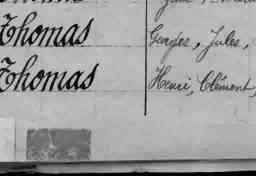 Thomas Georges, Jules,
Thomas Henri, Clément,